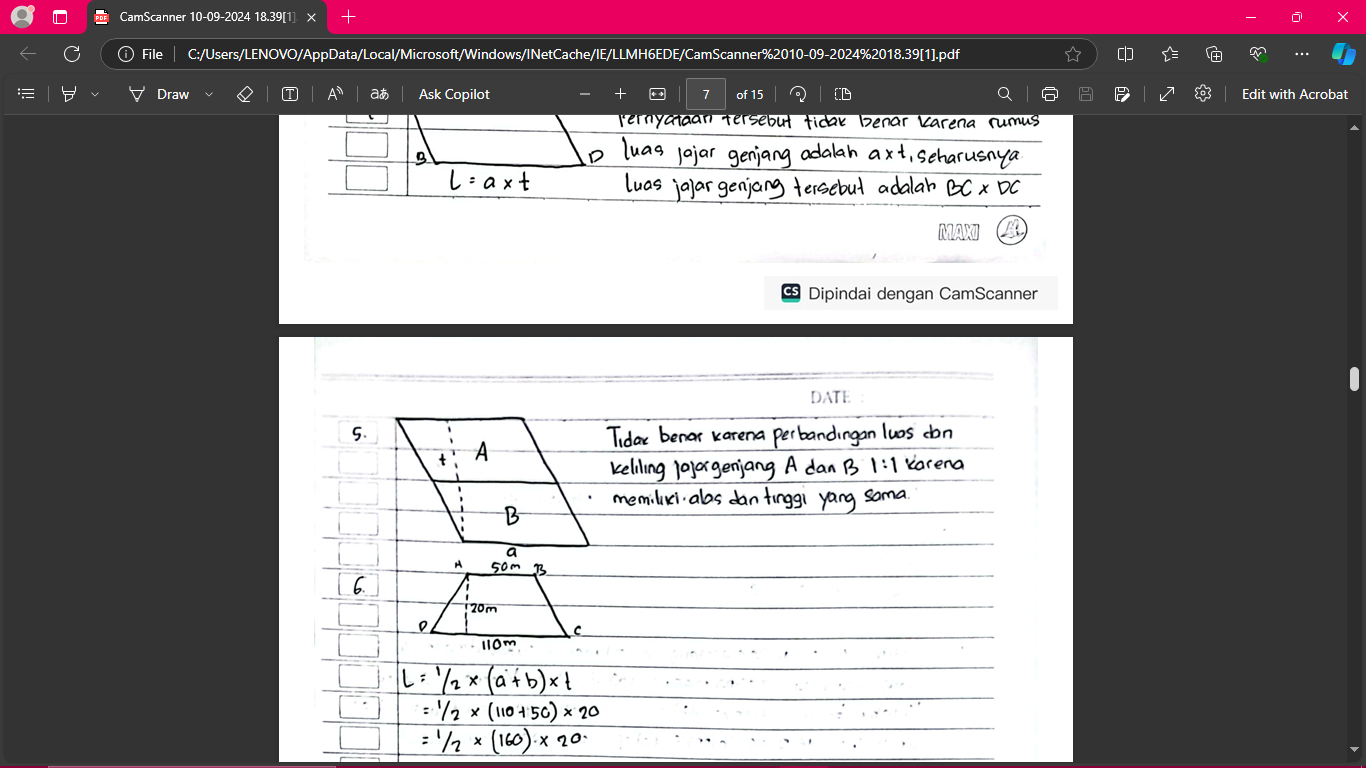 CamScanner 10-09-2024 18.39[1]
File
C:/Users/LENOVO/AppData/Local/Microsoft/Windows/INetCache/IE/LLMH6EDE/CamScanner%2010-09-2024%2018.39[1].pdf
Draw
Ask Copilot
7 of 15
Edit with Acrobat
Pernyataan tersebut tidak benar karena rumus
B D luas jajar genjang adalah a x t, seharusnya
L = a x t luas jajar genjang tersebut adalah BC x DC
MAXI
CS Dipindai dengan CamScanner
DATE :
5. A Tidak benar karena perbandingan luas dan
t keliling jajargenjang A dan B 1:1 karena
memiliki alas dan tinggi yang sama.
B
a
A 50m B
6.
20m
D C
110m
L = 1/2 x (a+b) x t
= 1/2 x (110+50) x 20
= 1/2 x (160) x 20